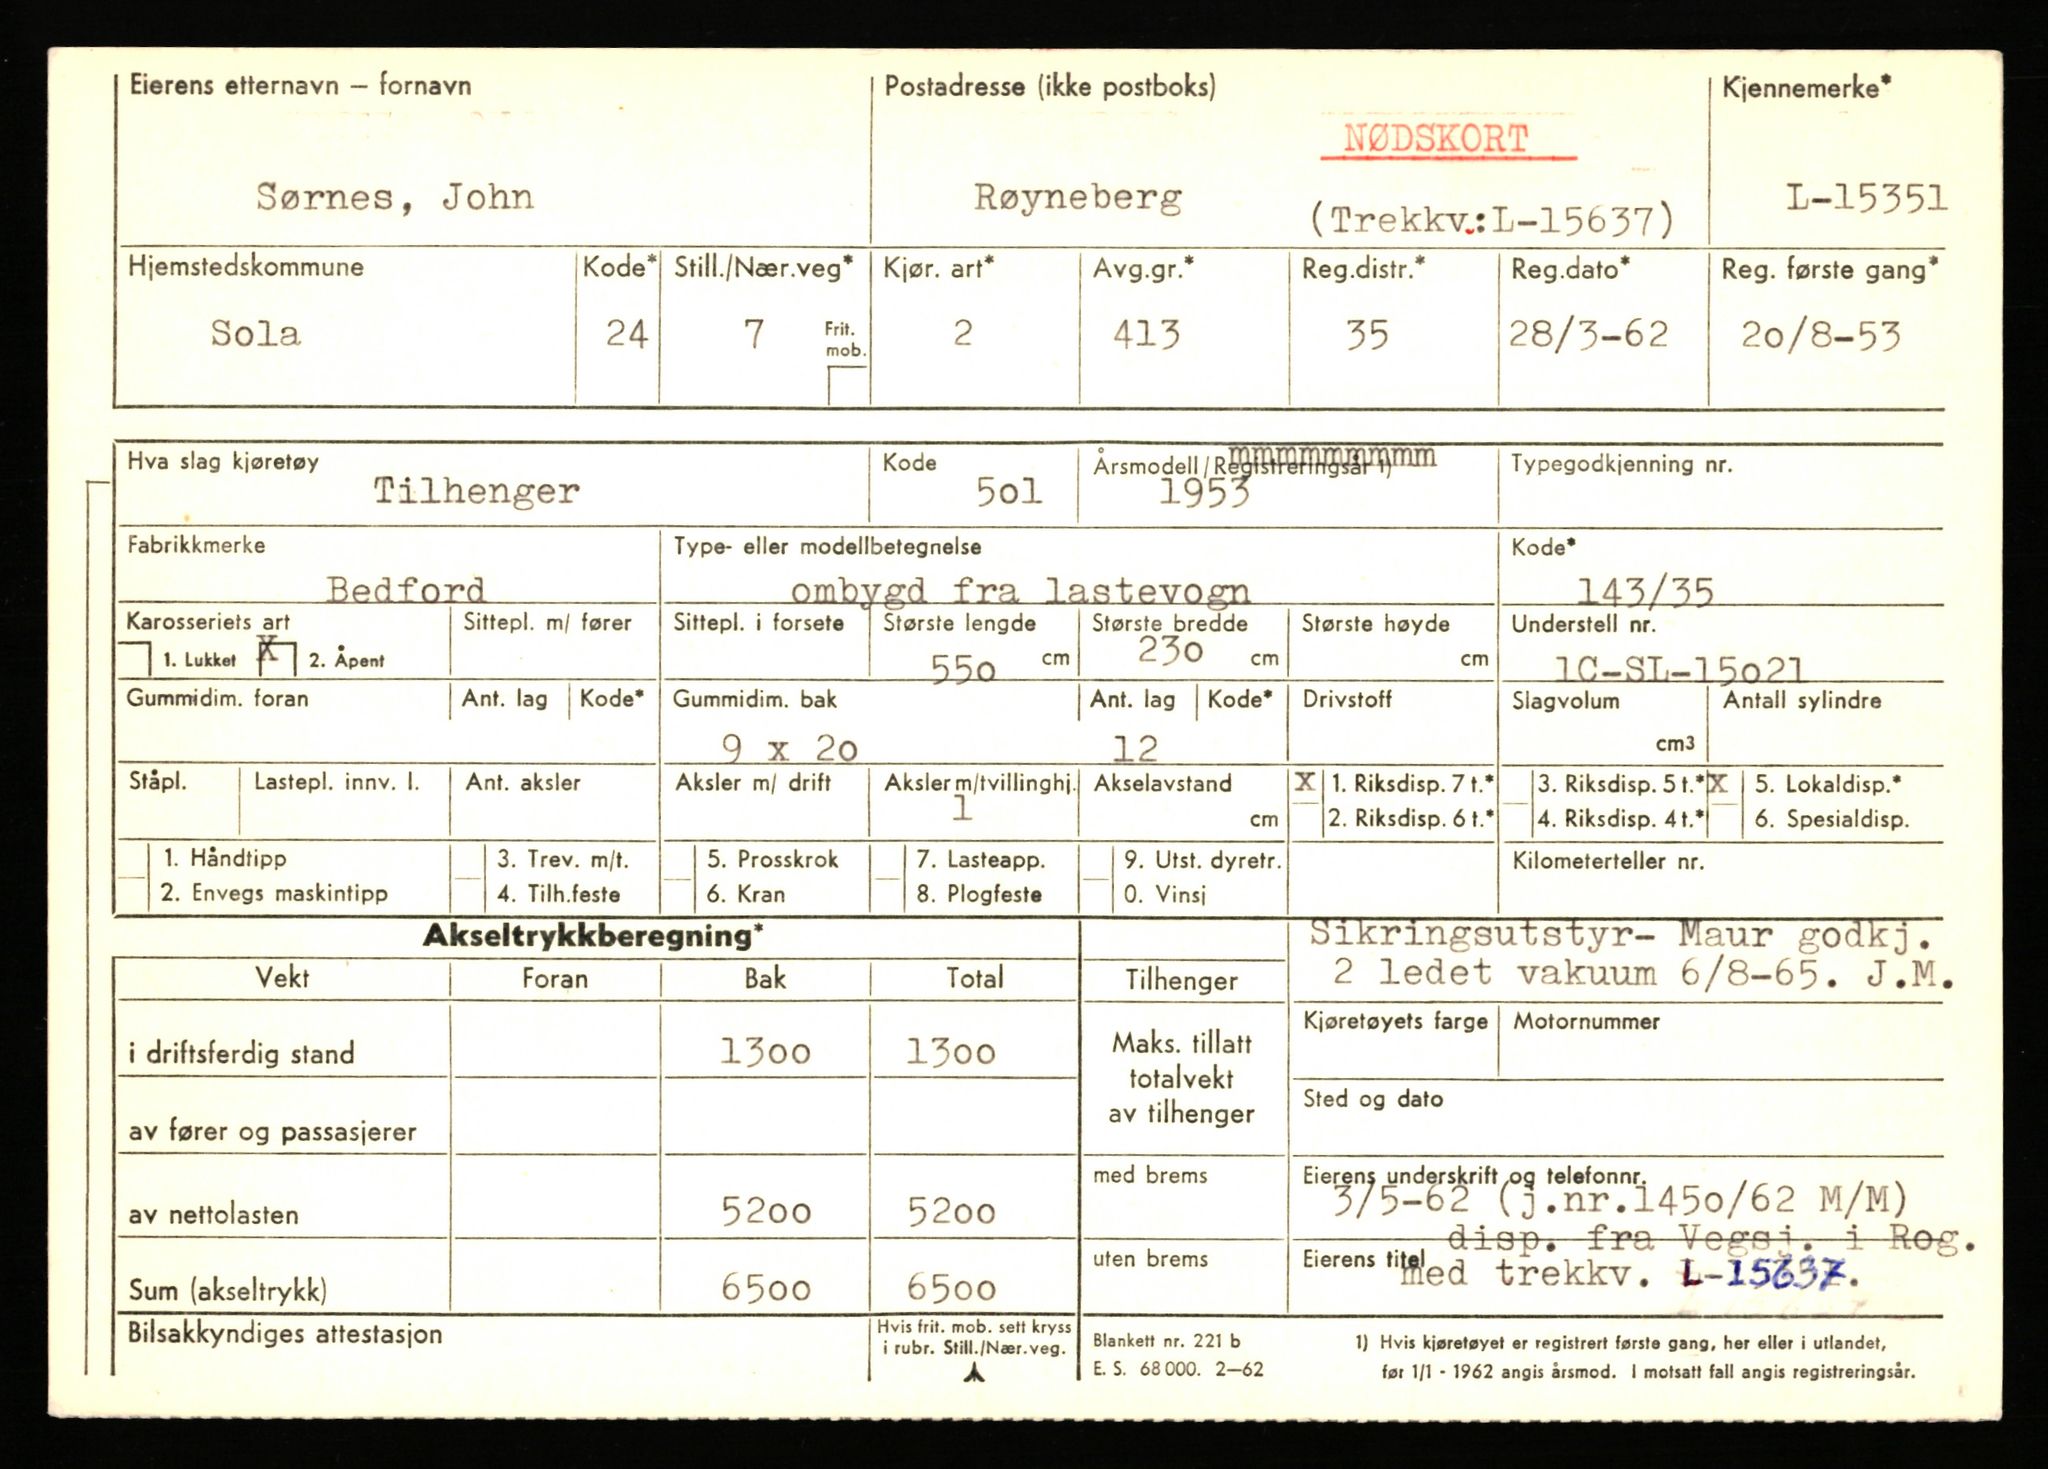 Eierens etternavn — fornavn
Postadresse (ikke postboks)
Kjennemerke*
NØDSKORT
Sørnes, John
Røyneberg
(Trekkv.:L-15637)
L-15351
Hjemstedskommune
Kode*
Still./Nær.veg*
Kjør. art*
Avg.gr.*
Reg.distr.*
Reg.dato*
Reg. første gang*
Sola
24
7
Frit. mob.
2
413
35
28/3-62
2o/8-53
Hva slag kjøretøy
Kode
Årsmodell/Registreringsår 1)
mmmmmmmmmm
Typegodkjenning nr.
Tilhenger
5o1
1953
Fabrikkmerke
Type- eller modellbetegnelse
Kode*
Bedford
ombygd fra lastevogn
143/35
Karosseriets art
Sittepl. m/ fører
Sittepl. i forsete
Største lengde
Største bredde
Største høyde
Understell nr.
1. Lukket
X
2. Åpent
55o cm
23o cm
cm
1C-SL-15o21
Gummidim. foran
Ant. lag
Kode*
Gummidim. bak
Ant. lag
Kode*
Drivstoff
Slagvolum
Antall sylindre
9 x 2o
12
cm3
Ståpl.
Lastepl. innv. l.
Ant. aksler
Aksler m/ drift
Aksler m/tvillinghj.
Akselavstand
X
1. Riksdisp. 7 t.*
3. Riksdisp. 5 t.*
X
5. Lokaldisp.*
1
cm
2. Riksdisp. 6 t.*
4. Riksdisp. 4 t.*
6. Spesialdisp.
1. Håndtipp
3. Trev. m/t.
5. Prosskrok
7. Lasteapp.
9. Utst. dyretr.
Kilometerteller nr.
2. Envegs maskintipp
4. Tilh.feste
6. Kran
8. Plogfeste
0. Vinsj
Akseltrykkberegning*
Sikringsutstyr- Maur godkj.
Vekt
Foran
Bak
Total
Tilhenger
2 ledet vakuum 6/8-65. J.M.
Kjøretøyets farge
Motornummer
i driftsferdig stand
13oo
13oo
Maks. tillatt
totalvekt
av tilhenger
Sted og dato
av fører og passasjerer
med brems
Eierens underskrift og telefonnr.
av nettolasten
52oo
52oo
3/5-62 (j.nr.145o/62 M/M)
disp. fra Vegsj. i Rog.
uten brems
Eierens titel
med trekkv. L-15637.
Sum (akseltrykk)
65oo
65oo
Bilsakkyndiges attestasjon
Hvis frit. mob. sett kryss
i rubr. Still./Nær.veg.
Blankett nr. 221 b
E. S. 68 000. 2—62
1) Hvis kjøretøyet er registrert første gang, her eller i utlandet,
før 1/1 - 1962 angis årsmod. I motsatt fall angis registreringsår.